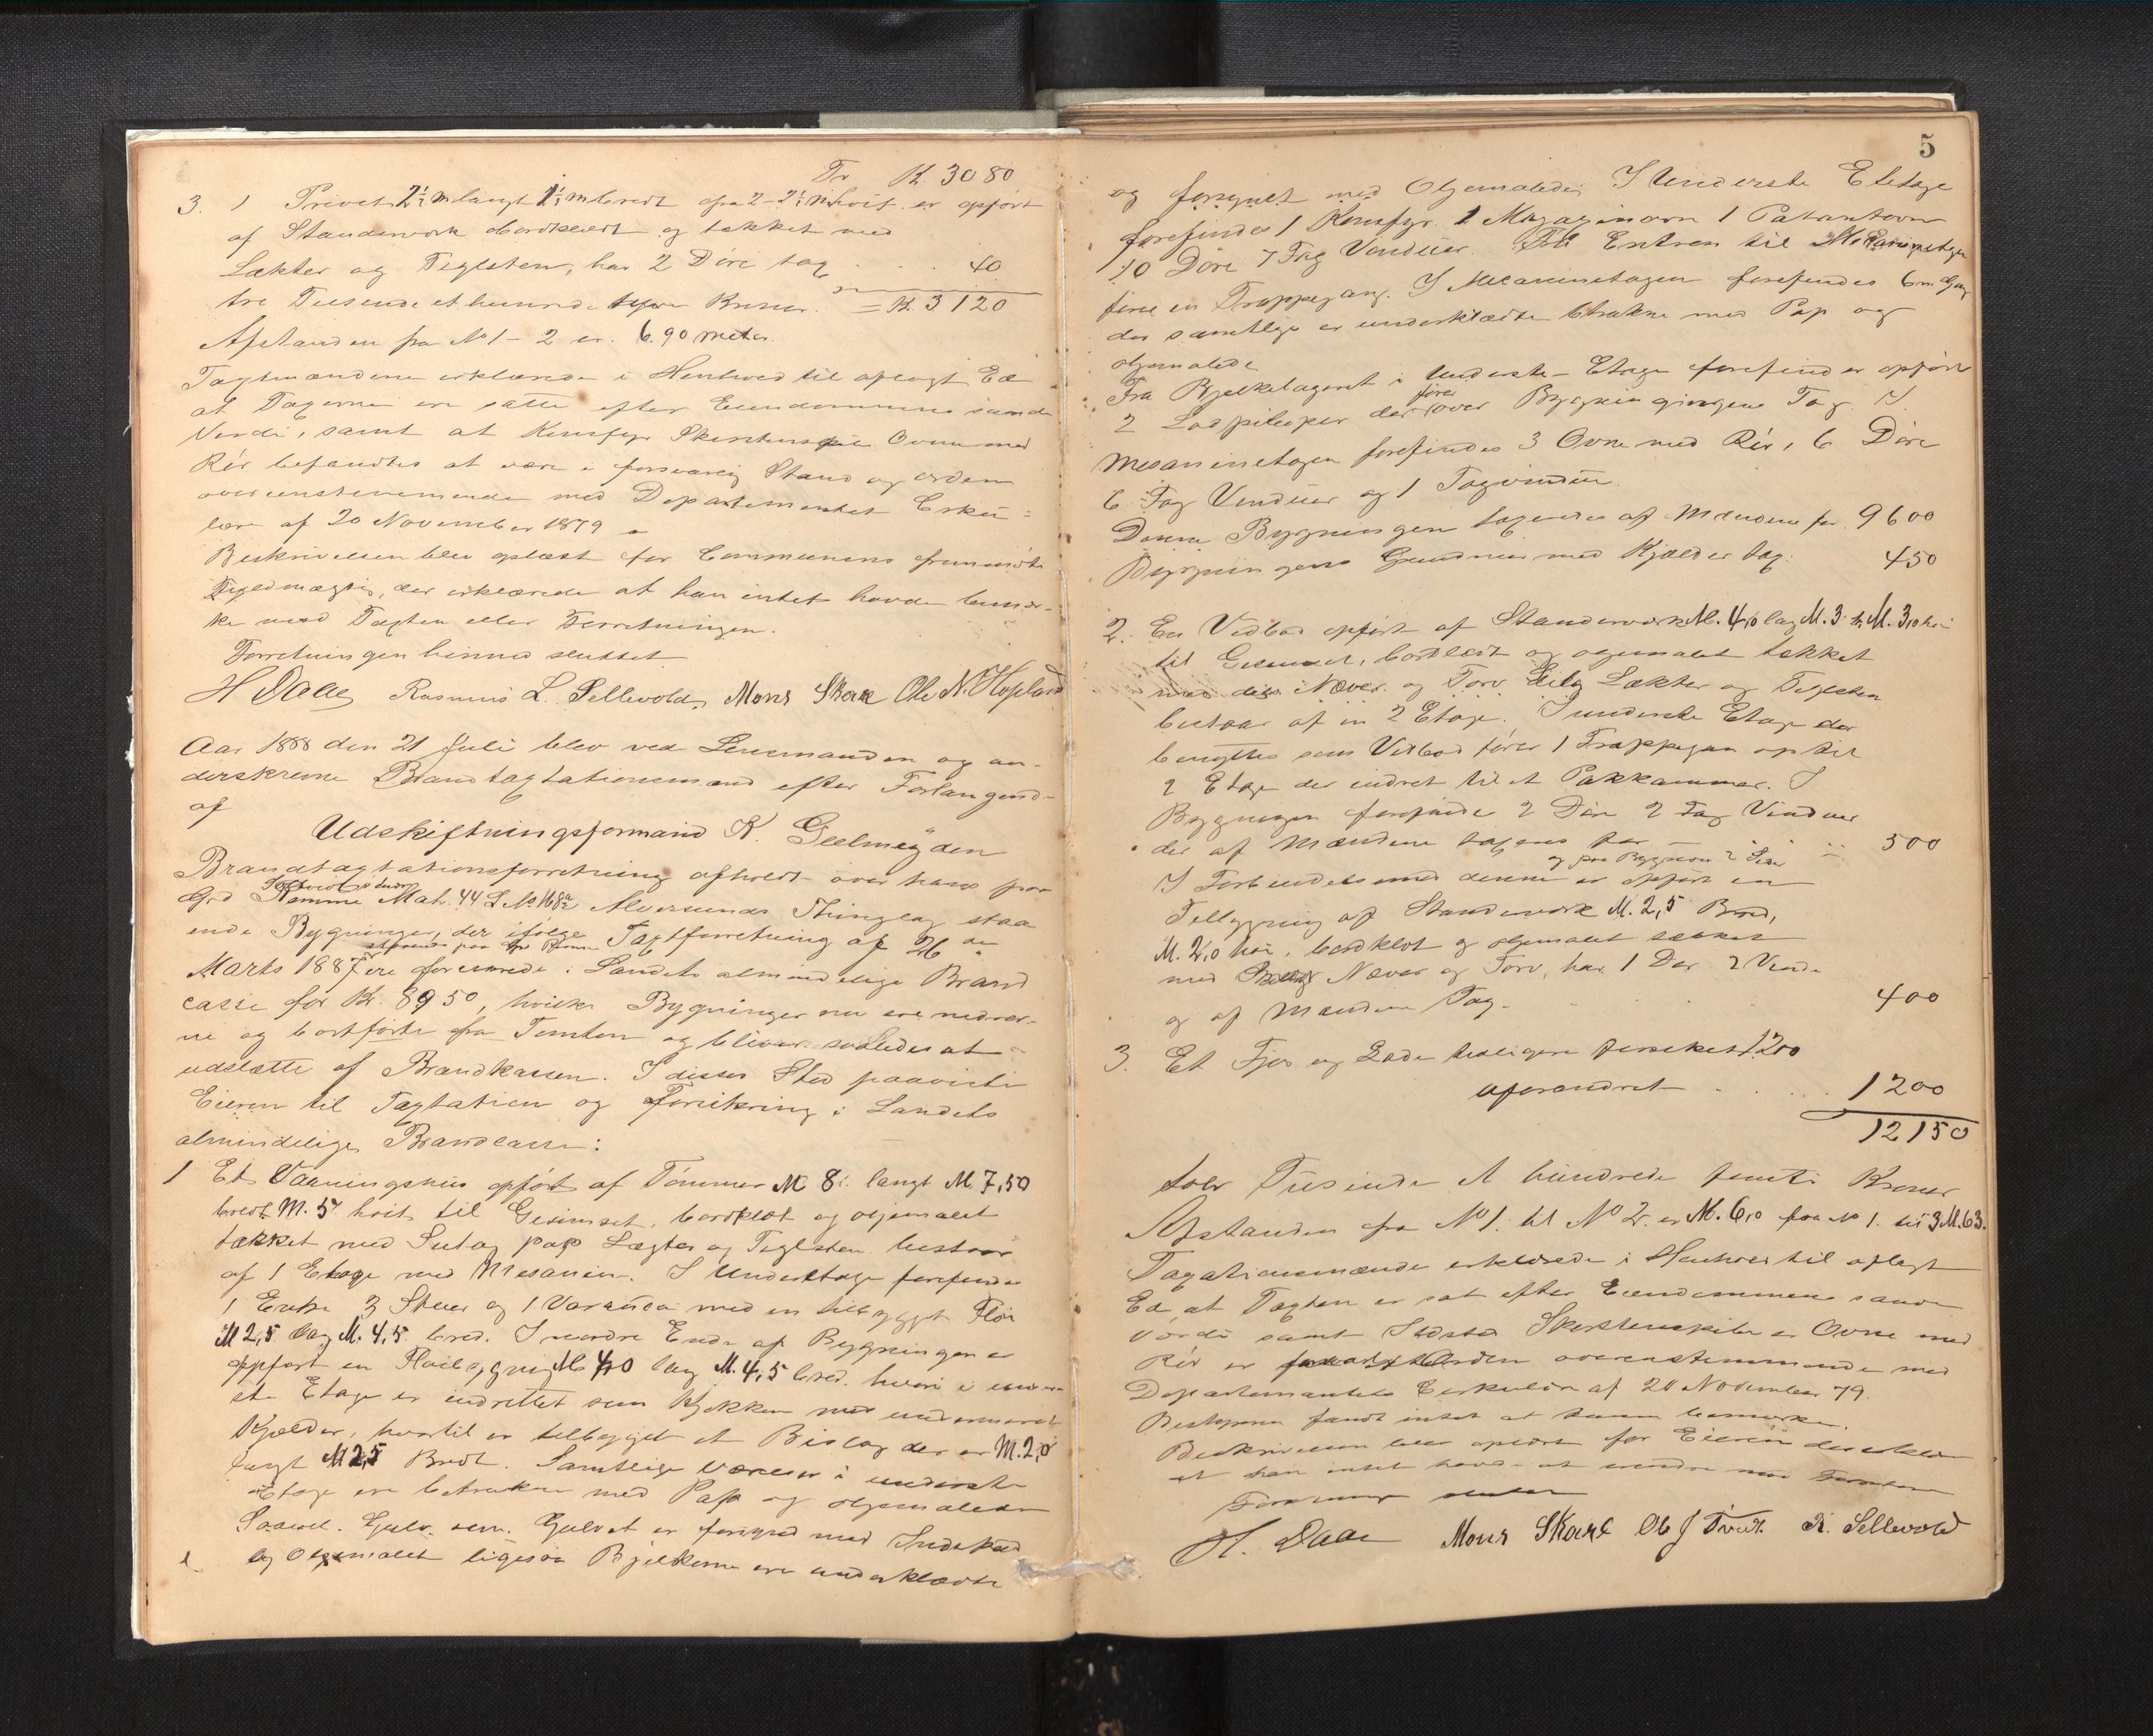 Tr. Kr. 3080
3. 1 Privet 2½ m langt 1½ m bredt fra 2-2½ m høit er opført
af Standerværk bordklædt og tækket med
Lækter og Teglsten, har 2 Döre tax. 40
tre Tusende et hunrde tyve Kroner. = Kr. 3120
Afstanden fra No 1 - 2 er. 6.90 meter.
Taxtmændene erklærede i Henhold til aflagt Ed
at Taxterne ere satte efter Eiendommens sande
Verdi, samt at Komfyr Skorstenspibe Ovne med
Rör befandtes at være i forsvarlig Stand og orden
overenstemmende med Departementet Cirku=
lære af 20 November 1879
Beskrivelsen blev oplæst for Communens fremmödte
Fuldmægtig, der erklærede at han intet havde bemær-
ke mod Taxten eller Forretningen.
Forretningen hermed sluttet
H Daae Rasmus L. Sellevold, Mons Skare Ole N. Hopland
Aar 1888 den 21 Juli blev ved Lensmanden og un-
derskrevne Brandtaxtationsmænd efter Forlangend
af
Udskiftningsformand K. Geelmeyden
Brandtaxtationsforretning afholdt over hans paa
Grd Hamme Mat. 44 L No 168a Alversunds Thinglag staa
ende Bygninger, der ifølge Taxtforretning af 26 de
Marts 1887 ere forsikrede i Landets almindelige Brand
casse for Kr. 8950, hvilke Bygninger nu ere nedrev-
ne og bortförte fra Tomten og bliver saaledes at
udslætte af Brandkassen. I disses Sted paaviste
Eieren til Taxtation og Forsikring i Landets
almindelige Brandcasse:
1 Et Vaaningshus opført af Tömmer M 8,. langt M. 7,50
bredt M. 5 høit til Gesimset, bordklæt og oljemalet
tækket med Sutag pap Lægter og Teglsten bestaar
af 1 Etage med Mesanin. I Underetage forefindes
1 Entre 3 Stuer og 1 Varanda med en tilbygget Fløi
M 2,5 lang M. 4,5 bred. I nordre Ende af Bygningen er
oppført en Fløibygning M 4,0 lang M. 4,5 bred. hvori i under
ste Etage er indrettet som Kjøkken med undermuret
Kjælder, hvortil er tilbygget et Bislag der er M. 2,0
langt M 2,5 Bredt. Samtlige Værelser i underste
Etage ere betrukne med Pap og oljemalede
Gulvet er forsynet med
og Oljemalet ligesaa Bjelkerne ere underklædte
5
og forsynet med Oljemaleder I Underste Etetage
forefindes 1 Komfyr 1 Magazinovn 1 Patentovn
10 Döre 7 Fag Vinduer. Fra Entren til Mesaninetagen
förer en Trappegang. I Mesaninetagen forefindes 6
der samtlige er underklædte betrukne med Pap og
oljemalede
Fra Bjelkelageret i Underste Etage forefindes opført
2 der fører over Bygningingens Tag. I
Mesaninetagen forefindes 3 Ovne med Rör, 6 Döre
6 Fag Vinduer og 1 Tagvindue.
Denne Bygningen taxeres af Mændene for 9600
Bygningens Grundmur med Kjælder tax. 450
2. En Vedbod opført af Standerværk M. 4,0 lag M. 3 b. M. 3,0 høi
til Gesimset, bordklædt og oljemalet tækket
med dels Næver og Torv dels Lækter og Teglsten
bestaar af en 2 Etage. I underste Etage der
benyttes som Vedbod fører 1 Trappegan op til
2 Etage der indret til et Pakkammer. I
Bygningen forefindes 2 Döre 2 Fag Vinduer
der af Mændene taxeres for 500
og paa Bygnin 2 Sider
I Forbindelse med denne er opført en
Tilbygning af Standerværk M. 2,5 Bred,
M. 2,0 høi, bordklæt og oljemalet tækket
med Næver og Torv, har 1 Dør 2 Vindu
og af Mændene Tax. 400
3. Et Fjøs og Lade tidligere forsikret 1200
uforandret 1200
12150
tolv Tusinde Et hundrede femti Kroner
Afstanden fra No 1. til No 2. er M. 6,0 fra No 1. til 3 M. 63.
Taxationsmændene erklærede i Henhold til aflagt
Ed at Taxten er sat efter Eiendommens sande
Værdi samt Ildsted Skorstenspiber Ovne med
Rör er Orden overenstemmende med
Departementets Cirkulær af 20 November 79.
fandt intet at bemærke.
Beskrivelsen blev oplæst for Eieren der erklæ
at han intet havde at erindre mod Forretn
Forretning sluttet
H. Daae Mons Skare Ole J Tveit R. Sellevold